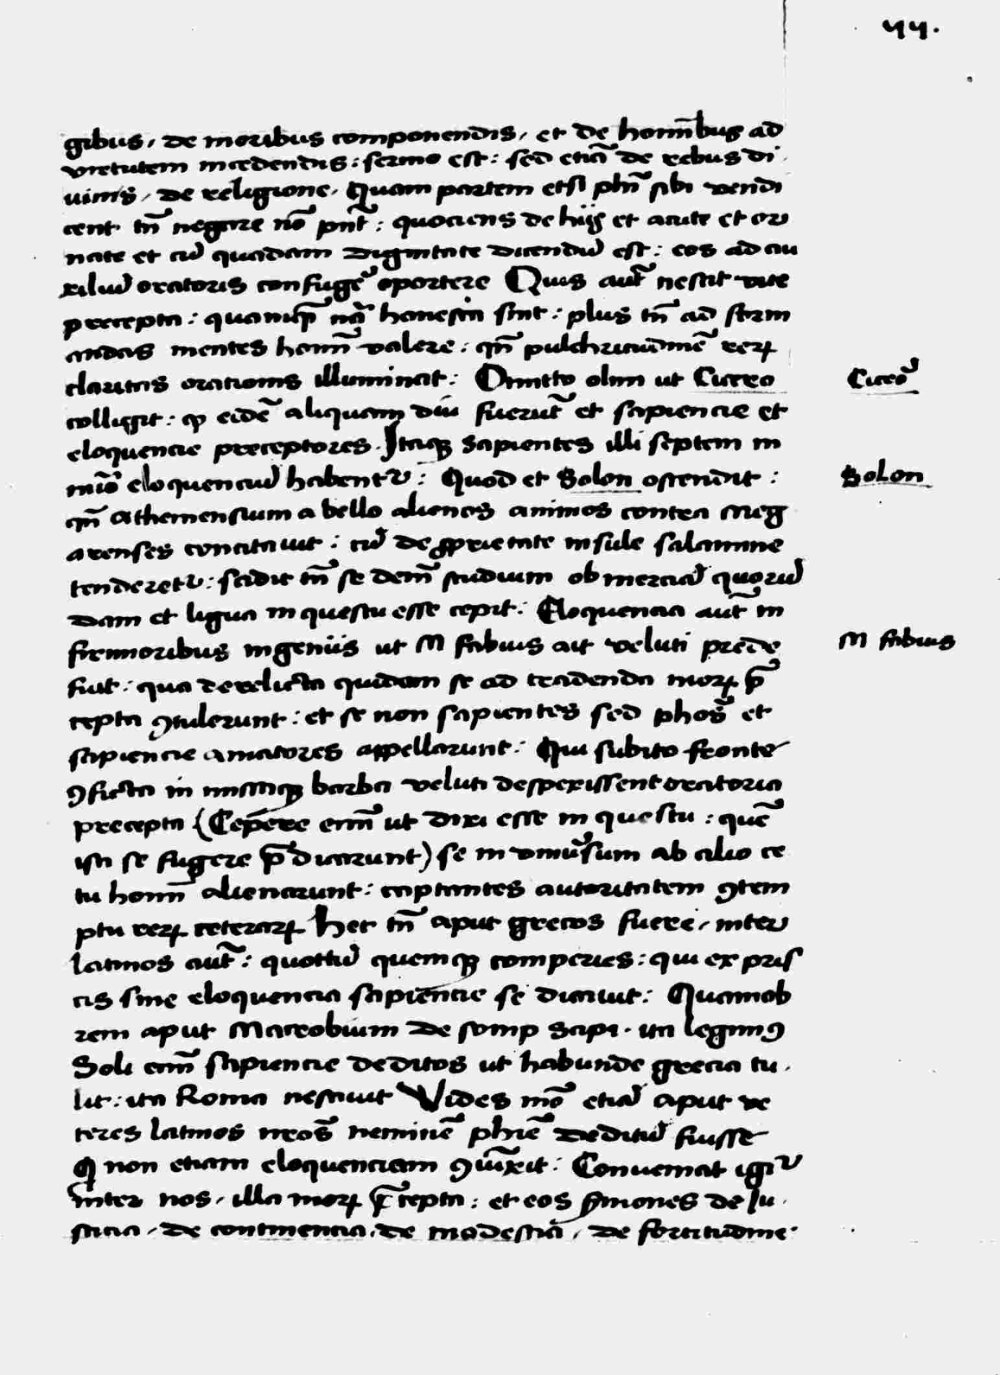 44.
gibus, de moribus componendis, et de hom̅ibus ad
virtutem incedendis: sermo est: sed etia̅ de rebus di
uinis, de religione, Quam partem etsi ph̅i sibi vendi
cent tn̅ negare no̅ pn̅t: quociens de hijs et acute et or
nate et cu̅ quadam dignitate dicendu̅ est: eos ad au
xiliu̅ oratoris confuge̅ oportere Quis aut̅ nescit vite
precepta: quamq̅ na̅ honesta sint: plus tn̅ ad form
andas mentes homi̅ valere: qn̅ pulchritudine̅ reꝝ
claritas orationis illuminat: Omitto olim ut Cicero
Cicero̅
colligit: ꝙ eide̅ aliquam diu fueru̅t et sapiencie et
eloquencie preceptores. Itaqꝫ sapientes illi septem in
mi̅o eloquenciu̅ habentr̅: Quod et Solon ostendit:
Solon
qn̅ atheniensium a bello alienos animos contra Meg
arenses concitauit: cu̅ de ꝓprietate insule salamine
tenderetr̅: scidit tn̅ se dem̅ studium ob inercia̅ quoru̅
dam et ligua in questu esse cepit: Eloquencia aut̅ in
firmioribus ingeniis ut M fabius ait veluti prede
M fabius
fuit: qua derelicta quidam se ad tradenda moꝝ p̅
cepta ꝯtulerunt: et se non sapientes sed phos̅ et
sapiencie amatores appellarunt: Qui subito fronte
ꝯficta in missaqꝫ barba veluti despexissent oratoria
precepta (Cepere eni̅ ut dixi esse in questu: que̅
isti se fugere p̅dicarunt) se in vniu̅sum ab alio ce
tu homi̅ alienarunt: captantes autoritatem ꝯtem
ptu reꝝ ceteraꝝ Hec tn̅ aput grecos fuere, inter
latinos aut̅: quottu̅ quemqꝫ comperies: qui ex pris
cis sine eloquencia sapiencie se dicauit: Quamob
rem aput Macrobium de somp Scipi. ita legimꝰ
Soli eni̅ sapiencie deditos ut habunde grecia tu.
lit: ita Roma nesciuit Vides mo̅ etia̅ aput ve
teres latinos nr̅os nemine̅ phi̅e deditu̅ fuisse
Q non etiam eloquenciam ꝯiu̅xit: Conueniat igir̅
inter nos, illa moꝝ p̅cepta: et eos s̅mones de Iu.
sticia, de continencia, de modestia, de fortitudine.